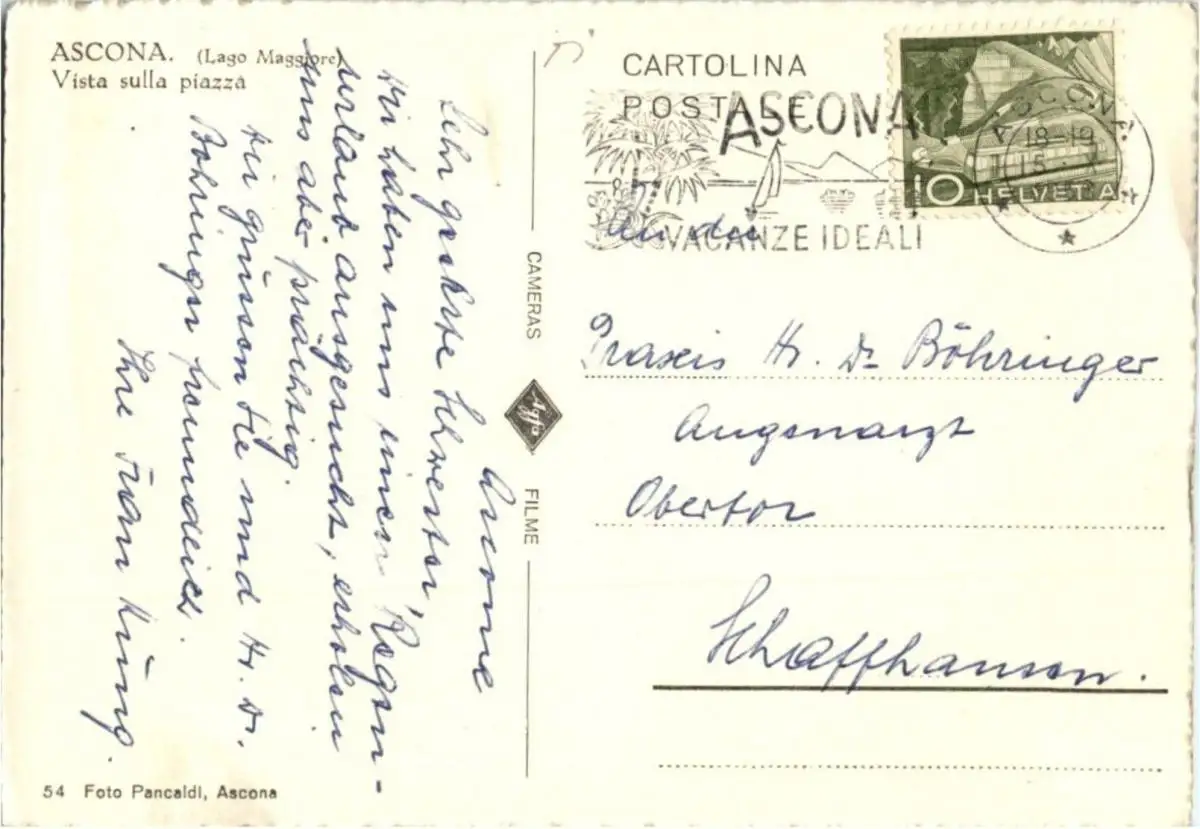 ASCONA. (Lago Maggiore)
Vista sulla piazza
Ascona
Sehr geehrte Schwester,
Wir haben uns einen Regen-
urlaub ausgesucht, erholen
uns aber prächtig.
Wir grüssen Sie und Hr. Dr.
Böhringer freundlich.
Ihre Frau Küng.
54 Foto Pancaldi, Ascona
CAMERAS
Agfa
FILME
CARTOLINA
POSTALE
ASCONA
VACANZE IDEALI
ASCONA
18-19
10 HELVETIA
An die
Praxis Hr. Dr Böhringer
Augenarzt
Obertor
Schaffhausen.